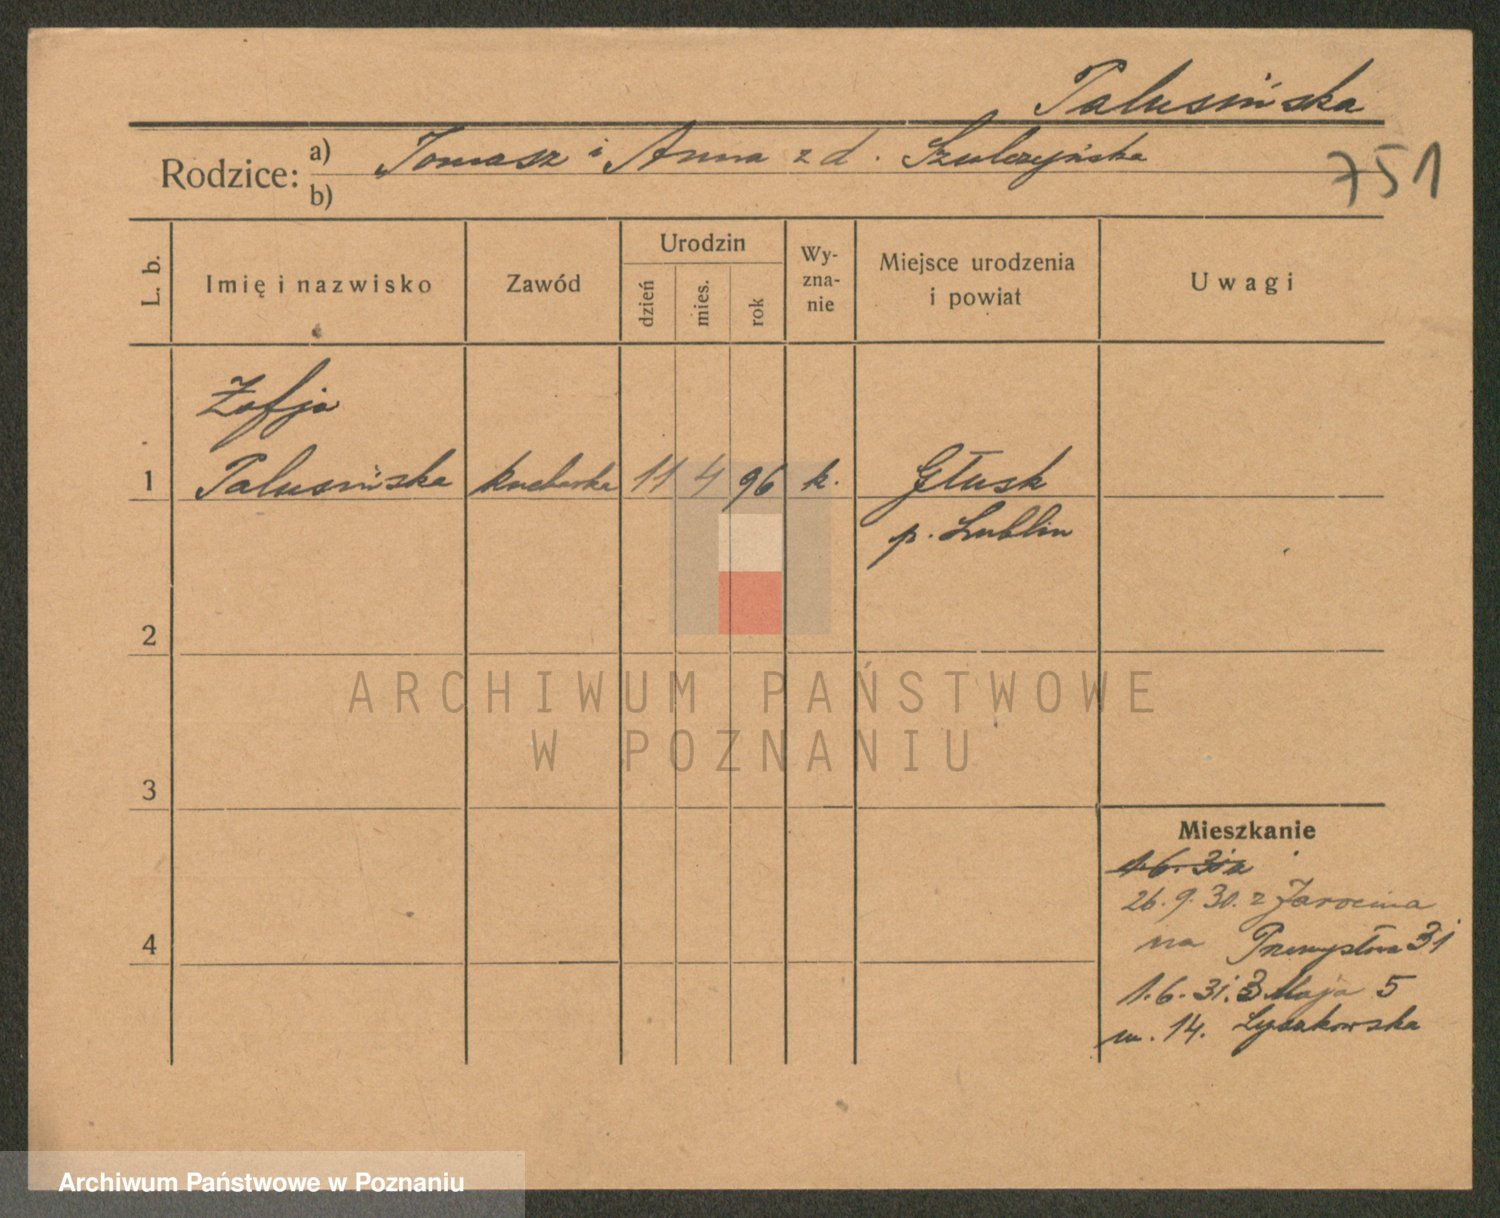 Palusińska
Rodzice: a) Tomasz i Anna z d. Szulczyńska
b)
751
L. b.
Imię i nazwisko
Zawód
Urodzin
dzień
mies.
rok
Wy-
zna-
nie
Miejsce urodzenia
i powiat
Uwagi
Zofja
1 Palusińska kucharka 11 4 96 k. Głusk
p. Lublin
2
3
4
Mieszkanie
1.6.31 z
26.9.30. z Jarocina
na Przemysłowa 31
1.6.31. 3 Maja 5
m. 14. Łysakowska
ARCHIWUM PAŃSTWOWE
W POZNANIU
Archiwum Państwowe w Poznaniu